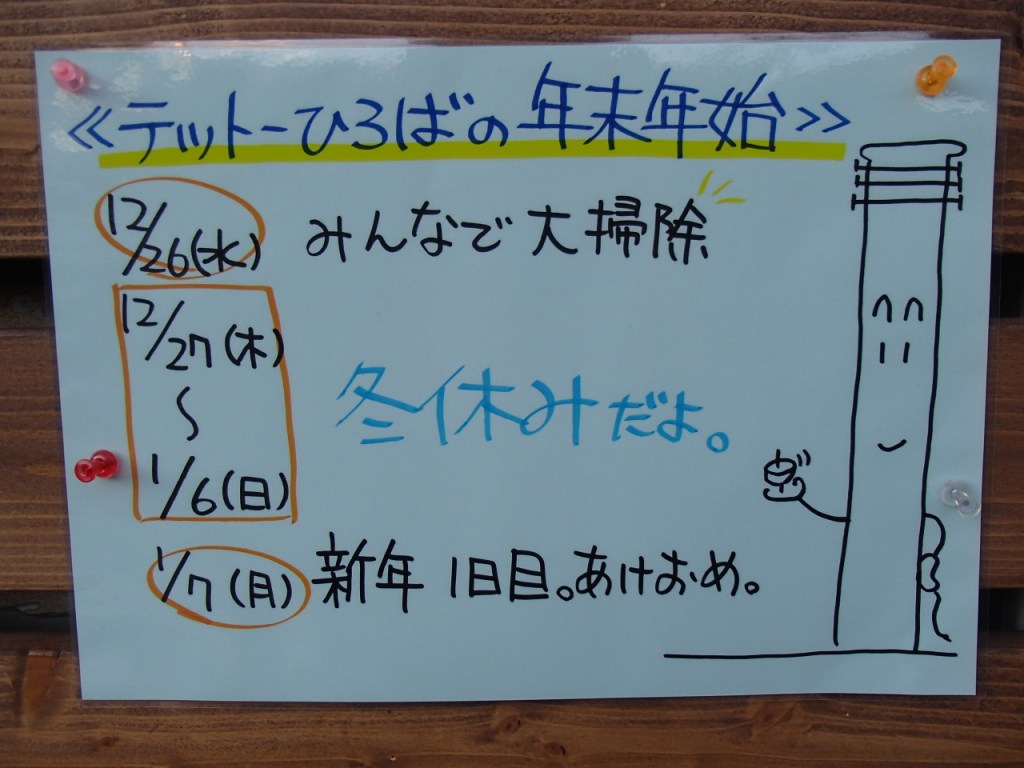 ≪テットーひろばの年末年始≫
12/26(水) みんなで大掃除
12/27(木)
〜
1/6(日)
冬休みだよ。
1/7(月) 新年1日目。あけおめ。